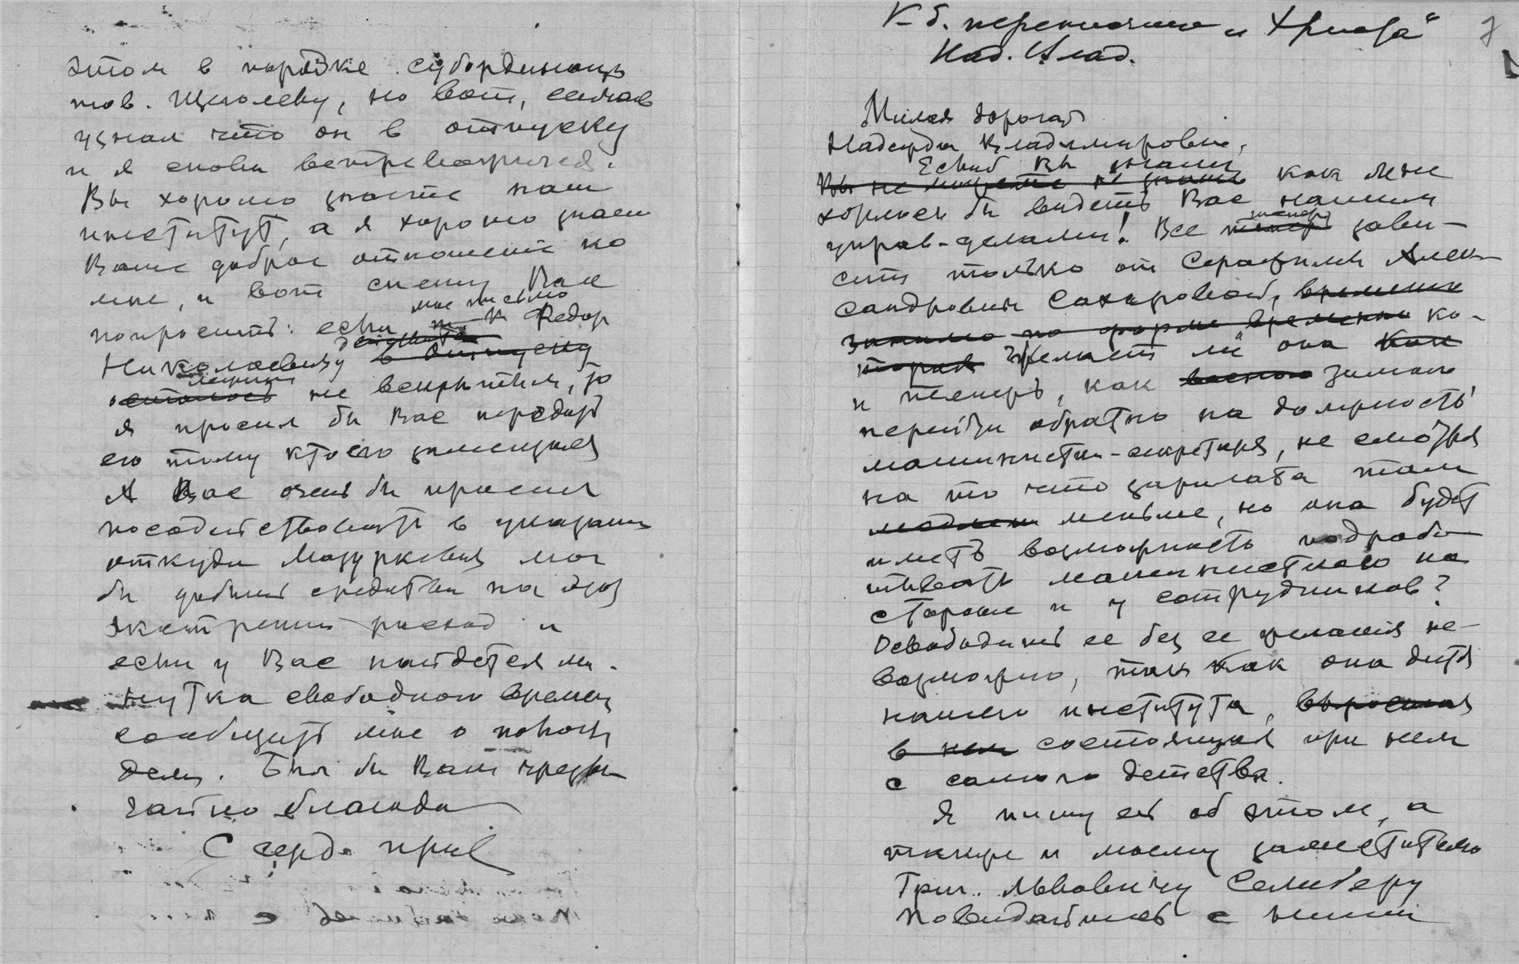 этом в порядке субординац
тов. Щеголеву, но вот, сейчас
узнал что он в отпуску
и я снова встревожился.
Вы хорошо знаете наш
институт, а я хорошо знаю
Ваше доброе отношение ко
мне, и вот спешу Вас
мое письмо
попросить: если к Федор
Николаевичу в отпуску
осталось не вскрытым, то
я просил бы Вас передать
его тому кто его замещает
А Вас очень бы просил
посодействовать в указании
откуда Мазуркевич мог
бы добыть средства на этот
экстренный расход и
если у Вас найдется ми-
нутка свободного времени
сообщить мне о положен
дела. Был бы Вам чрезвы
чайно благода
С серд. прив
К-б. переписано и
Над. Влад.
7
Милая дорогая
Надежда Владимировна,
Если б Вы знали
Вы не можете как мне
хотелось бы видеть Вас нашим
управ-делами! Все теперь зави-
сит только от Серафимы Алек
сандровны Сахаровой, временно
занимо по форме временно ко-
торая Желает ли она как
и теперь, как зимою
перейти обратно на должность
машинистки-секретаря, не смотря
на то что зарплата там
меньше, но она будет
иметь возможность подраба
тывать машинисткою на
стороне и у сотрудников?
Освободить ее без ее желания не-
возможно, так как она дитя
нашего института, выросшая
в нем состоящая при нем
с самого детства.
Я пишу ей об этом, а
также и моему заместителю
Григ. Львовичу Селиберу
Повидайтесь с ними